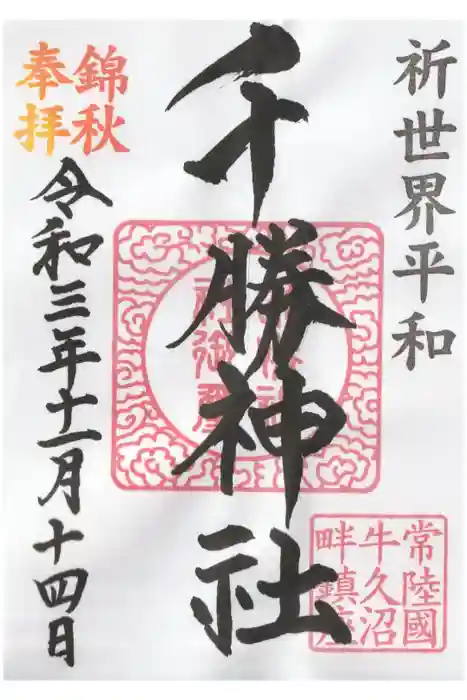 祈世界平和
千勝神社
常陸國
牛久沼
畔鎮座
錦秋
奉拝
令和三年十一月十四日